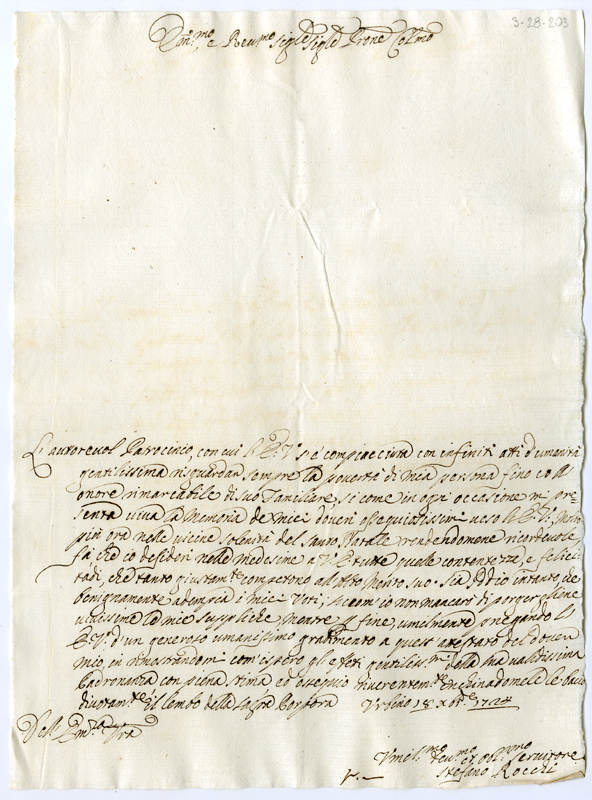 3-28-203
Em.mo e Reu.mo Sig.re Sig.re Prone Colmo
L'autoreuol Patrocinio, con cui l'E.V. s'è compiacciuta con infiniti atti d'umanità
gentilissima riguardar sempre la pouertà di mia persona fino coll'
onore rimarcabile di suo Familiare, si come in ogni occasione mi pre-
senta uiua la memoria de miei doueri ossequiatissimi uerso l'E.V.,
più ora nelle uicine solenità del Santo Natale rendendomene ricordeuole
fà che io desideri nelle medesime a V.E. tutte quale contentezza, e felici-
tadi, che tanto giustam.te competono all'alto merito suo. Sia Iddio intanto che
benignamente adempia i miei Voti; siccom'io non mancarò di porgergliene
uiuissime le mie suppliche, mentre al fine, umilmente pregando l'
E.V. d'un generoso umanissimo gradimento a quest'attestato del douer
mio, in dimostrandomi com'ispero gl'effetti gentiliss.mi della sua ualidissima
Padronanza con piena stima ed ossequio riuerentem.te inchinandomele le bacio
diuotam.te il lembo della Sagra Porpora Urbino 18 Xbre 1724
Dell'Em.za Vra
Umil.mo Deu.mo et Obl.mo Seruitore
Stefano Roceti